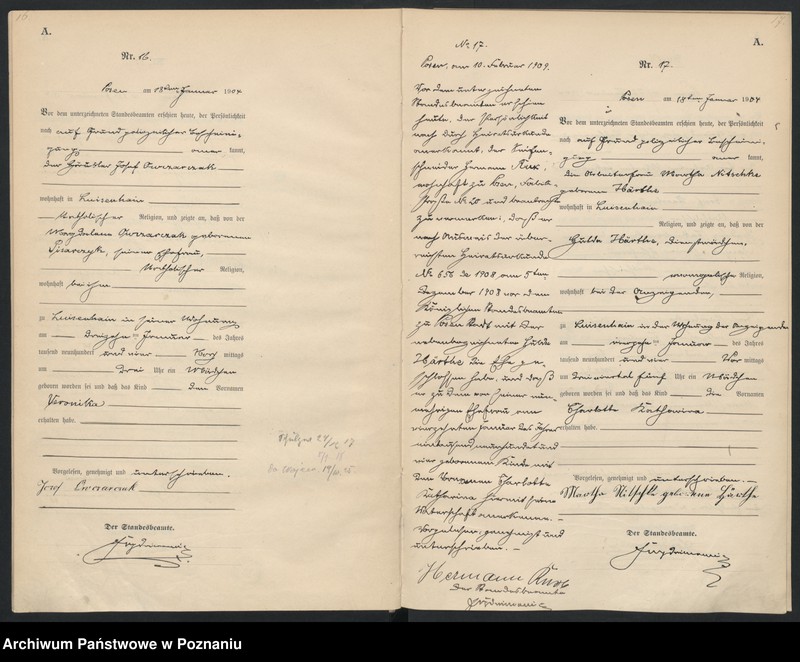 A.
Nr. 16.
Posen am 18ten Januar 1904
Vor dem unterzeichneten Standesbeamten erschien heute, der Persönlichkeit
nach auf Grund polizeilicher Bescheini-
gung kannt,
der Häusler Josef Owczarczak
wohnhaft in Luisenhain
katholischer Religion, und zeigte an, daß von der
Magdalena Owczarczak geborenen
seiner Ehefrau,
katholischer Religion,
wohnhaft bei ihm
zu Luisenhain in seiner Wohnung
am dreizehnten Januar des Jahres
tausend neunhundert und vier Vor mittags
um drei Uhr ein Mädchen
geboren worden sei und daß das Kind den Vornamen
Veronika
erhalten habe.
Vorgelesen, genehmigt und unterschrieben.
Josef Owczarczak
Der Standesbeamte.
No 17.
Posen, am 10. Februar 1909.
Vor dem unterzeichneten
Standesbeamten erschien
heute, der Persönlichkeit
nach durch Heiratsurkunde
anerkannt, der
Hermann
wohnhaft zu Posen,
straße No 20 und beantragte
zu vermerken, daß er
nach Ausweis der über-
reichten Heiratsurkunde
No 656 de 1908 am 5ten
Dezember 1908 vor dem
Königlichen Standesbeamten
zu Posen Stadt mit der
nebenbezeichneten Hulda
Härthe die Ehe ge-
schlossen habe, und daß
er zu dem von seiner nun-
mehrigen Ehefrau am
vierzehnten Januar des Jahres
eintausend neunhundert und
vier geborenen Kinde mit
dem Vornamen Charlotte
Katharina hiermit seine
Vaterschaft anerkenne.
Vorgelesen, genehmigt und
unterschrieben.
Hermann
Der Standesbeamte
A.
Nr. 17.
Posen am 18ten Januar 1904
Vor dem unterzeichneten Standesbeamten erschien heute, der Persönlichkeit
nach auf Grund polizeilicher Bescheini-
gung kannt,
die Arbeiterfrau Martha Nitschke
geborene Härthe
wohnhaft in Luisenhain
Religion, und zeigte an, daß von der
Hulda Härthe, Dienstmädchen,
evangelische Religion,
wohnhaft bei der Anzeigenden,
zu Luisenhain in der Wohnung der Anzeigenden
am vierzehnten Januar des Jahres
tausend neunhundert und vier Vor mittags
um dreiviertel fünf Uhr ein Mädchen
geboren worden sei und daß das Kind die Vornamen
Charlotte Katharina
erhalten habe.
Vorgelesen, genehmigt und unterschrieben.
Martha Nitschke geborene Härthe
Der Standesbeamte.
Archiwum Państwowe w Poznaniu